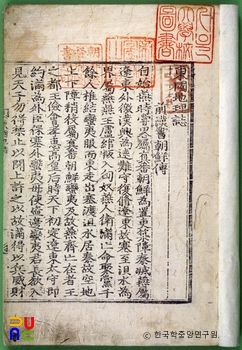 東國地理誌
前漢書朝鮮傳
自始燕時嘗略屬真番朝鮮為置吏築障秦滅燕屬
遼東外徼漢興為遠難守復修遼東故塞至浿水為
界屬燕燕王盧綰叛入匈奴燕人衛滿亡命聚黨千
餘人推結蠻夷服而東走出塞渡浿水居秦故空地
上下障稍役屬真番朝鮮蠻夷及故燕齊亡在者王
之都王儉會孝惠高后時天下初定遼東太守即
約滿為外臣保塞外蠻夷毋使盜邊蠻夷君長欲入
見天子勿得禁止以聞上許之以故滿得以兵威財
한국학중앙연구원